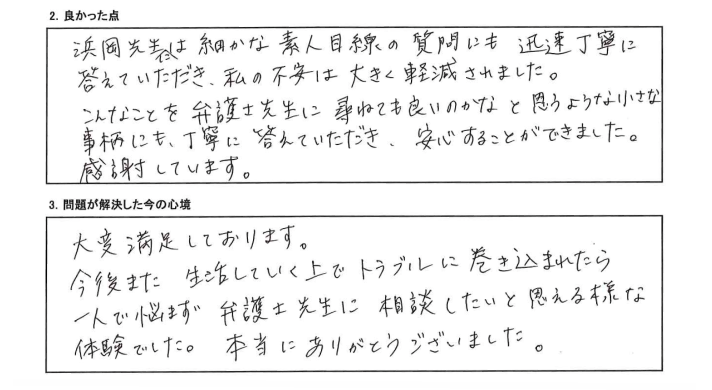 2. 良かった点
浜岡先生は細かな素人目線の質問にも迅速丁寧に
答えていただき、私の不安は大きく軽減されました。
こんなことを弁護士先生に尋ねても良いのかなと思うような小さな
事柄にも、丁寧に答えていただき、安心することができました。
感謝しています。
3. 問題が解決した今の心境
大変満足しております。
今後また生活していく上でトラブルに巻き込まれたら
一人で悩まず弁護士先生に相談したいと思える様な
体験でした。本当にありがとうございました。